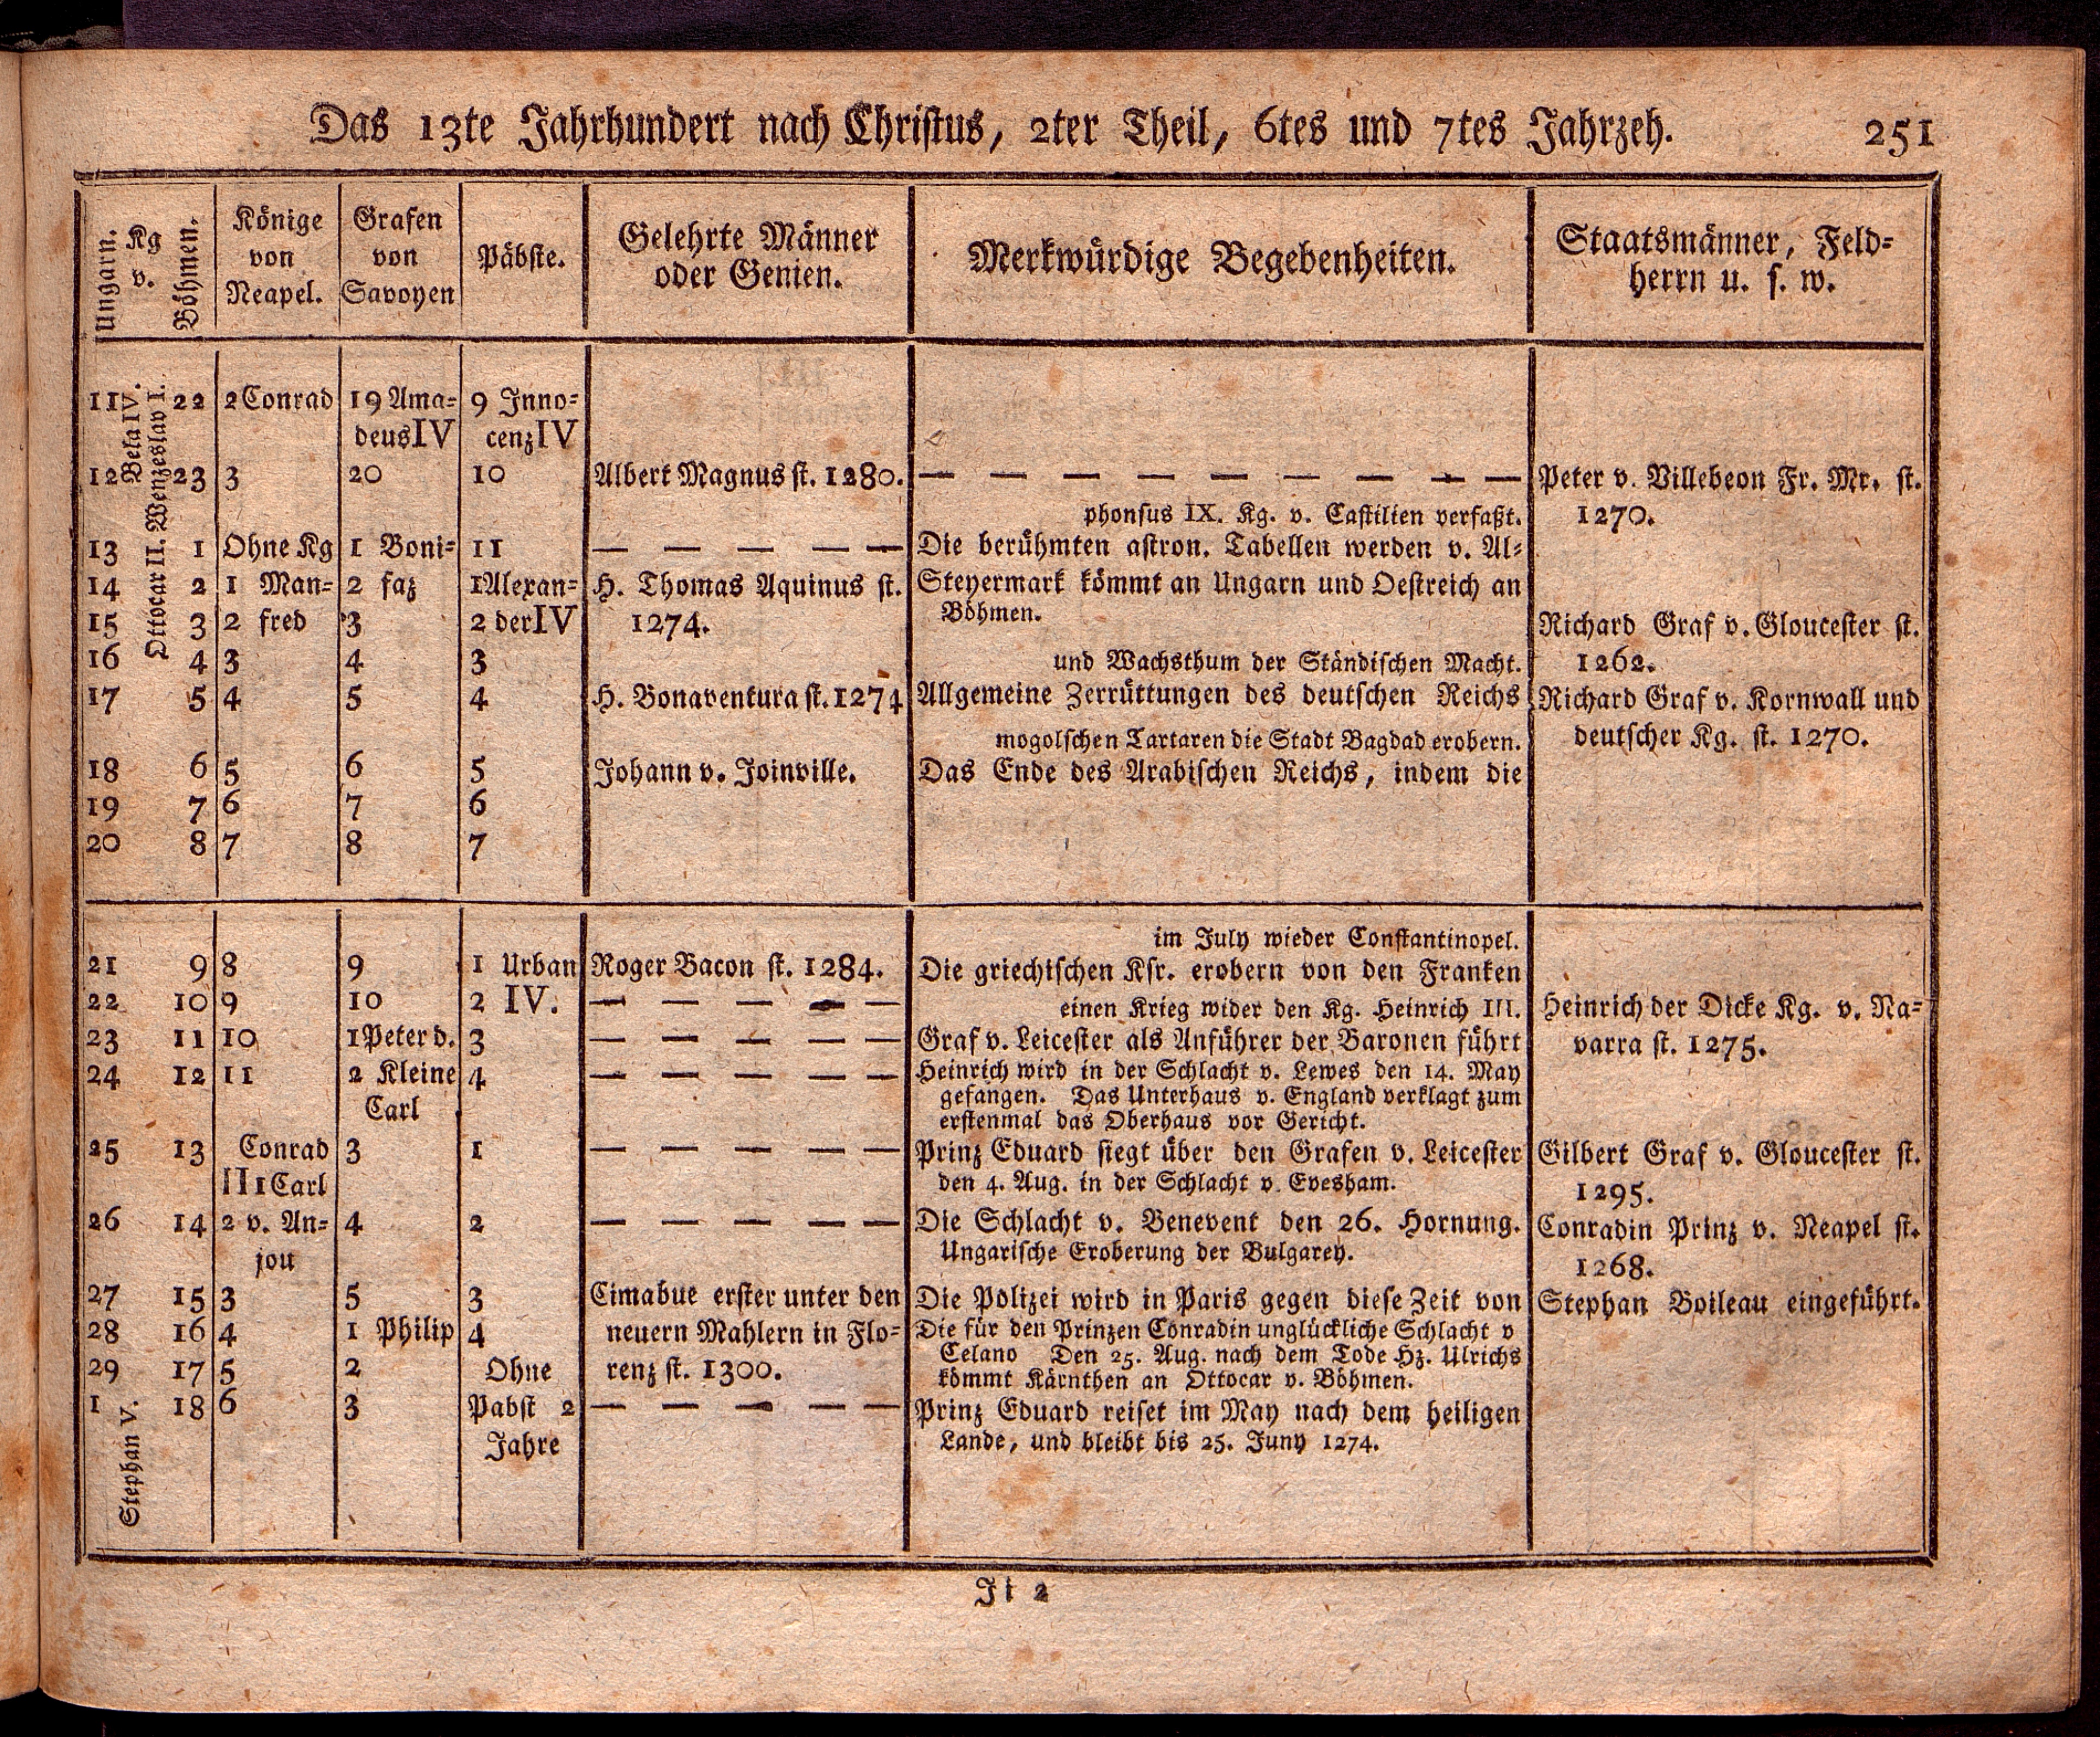 Das 13te Jahrhundert nach Christus, 2ter Theil, 6tes und 7tes Jahrzeh. 251
Ungarn.
Kg
v.
Böhmen.
Könige
von
Neapel.
Grafen
von
Savoyen
Päbste.
Gelehrte Männer
oder Genien.
Merkwürdige Begebenheiten.
Staatsmänner, Feld-
herrn u. s. w.
Bela IV.
Ottocar II. Wenzeslav I.
11 22 2 Conrad 19 Ama- 9 Inno-
deus IV cenz IV
12 23 3 20 10 Albert Magnus st. 1280. — — — — — — — — — Peter v. Villebeon Fr. Mr. st.
phonsus IX. Kg. v. Castilien verfaßt. 1270.
13 1 Ohne Kg 1 Boni- 11 — — — — — Die berühmten astron. Tabellen werden v. Al-
14 2 1 Man- 2 faz 1 Alexan- H. Thomas Aquinus st. Steyermark kömmt an Ungarn und Oestreich an
Böhmen.
15 3 2 fred 3 2 der IV 1274. Richard Graf v. Gloucester st.
16 4 3 4 3 und Wachsthum der Ständischen Macht. 1262.
17 5 4 5 4 H. Bonaventura st. 1274 Allgemeine Zerrüttungen des deutschen Reichs Richard Graf v. Kornwall und
mogolschen Tartaren die Stadt Bagdad erobern. deutscher Kg. st. 1270.
18 6 5 6 5 Johann v. Joinville. Das Ende des Arabischen Reichs, indem die
19 7 6 7 6
20 8 7 8 7
im July wieder Constantinopel.
21 9 8 9 1 Urban Roger Bacon st. 1284. Die griechischen Ksr. erobern von den Franken
22 10 9 10 2 IV. — — — — — einen Krieg wider den Kg. Heinrich III. Heinrich der Dicke Kg. v. Na-
23 11 10 1 Peter d. 3 — — — — — Graf v. Leicester als Anführer der Baronen führt varra st. 1275.
24 12 11 2 Kleine 4 — — — — — Heinrich wird in der Schlacht v. Lewes den 14. May
gefangen. Das Unterhaus v. England verklagt zum
Carl erstenmal das Oberhaus vor Gericht.
25 13 Conrad 3 1 — — — — — Prinz Eduard siegt über den Grafen v. Leicester Gilbert Graf v. Gloucester st.
II 1 Carl den 4. Aug. in der Schlacht v. Evesham. 1295.
26 14 2 v. An- 4 2 — — — — — Die Schlacht v. Benevent den 26. Hornung. Conradin Prinz v. Neapel st.
jou Ungarische Eroberung der Bulgarey. 1268.
27 15 3 5 3 Cimabue erster unter den Die Polizei wird in Paris gegen diese Zeit von Stephan Boileau eingeführt.
28 16 4 1 Philip 4 neuern Mahlern in Flo- Die für den Prinzen Conradin unglückliche Schlacht v
Celano Den 25. Aug. nach dem Tode Hz. Ulrichs
29 17 5 2 Ohne renz st. 1300. kömmt Kärnthen an Ottocar v. Böhmen.
1 18 6 3 Pabst 2 — — — — — Prinz Eduard reiset im May nach dem heiligen
Jahre Lande, und bleibt bis 25. Juny 1274.
Stephan V.
Ji 2